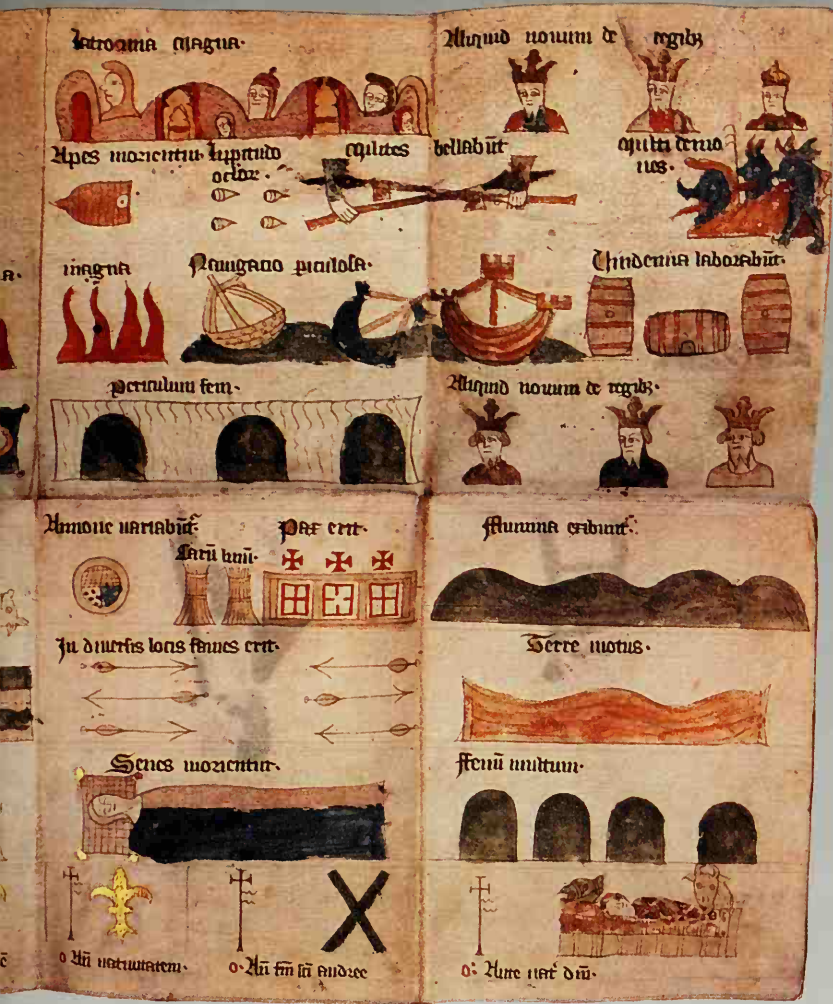 latrocinia magna·
Aliquid nouum de regibz
Apes morientur· lippitudo
oclor·
Milites bellabūt
Multi demo
nes·
a·
magna
Nauigacio piculosa·
Uindemia laborabūt·
periculum feni·
Aliquid nouum de regibz·
Annone uariabūt·
Carū uinū·
Pax erit·
fflumina exibunt·
In diuersis locis fames erit·
Terre motus·
Senes morientur·
ffenū multum·
o An natiuitatem·
o· An fm sci andree
o· Ante nat dni·